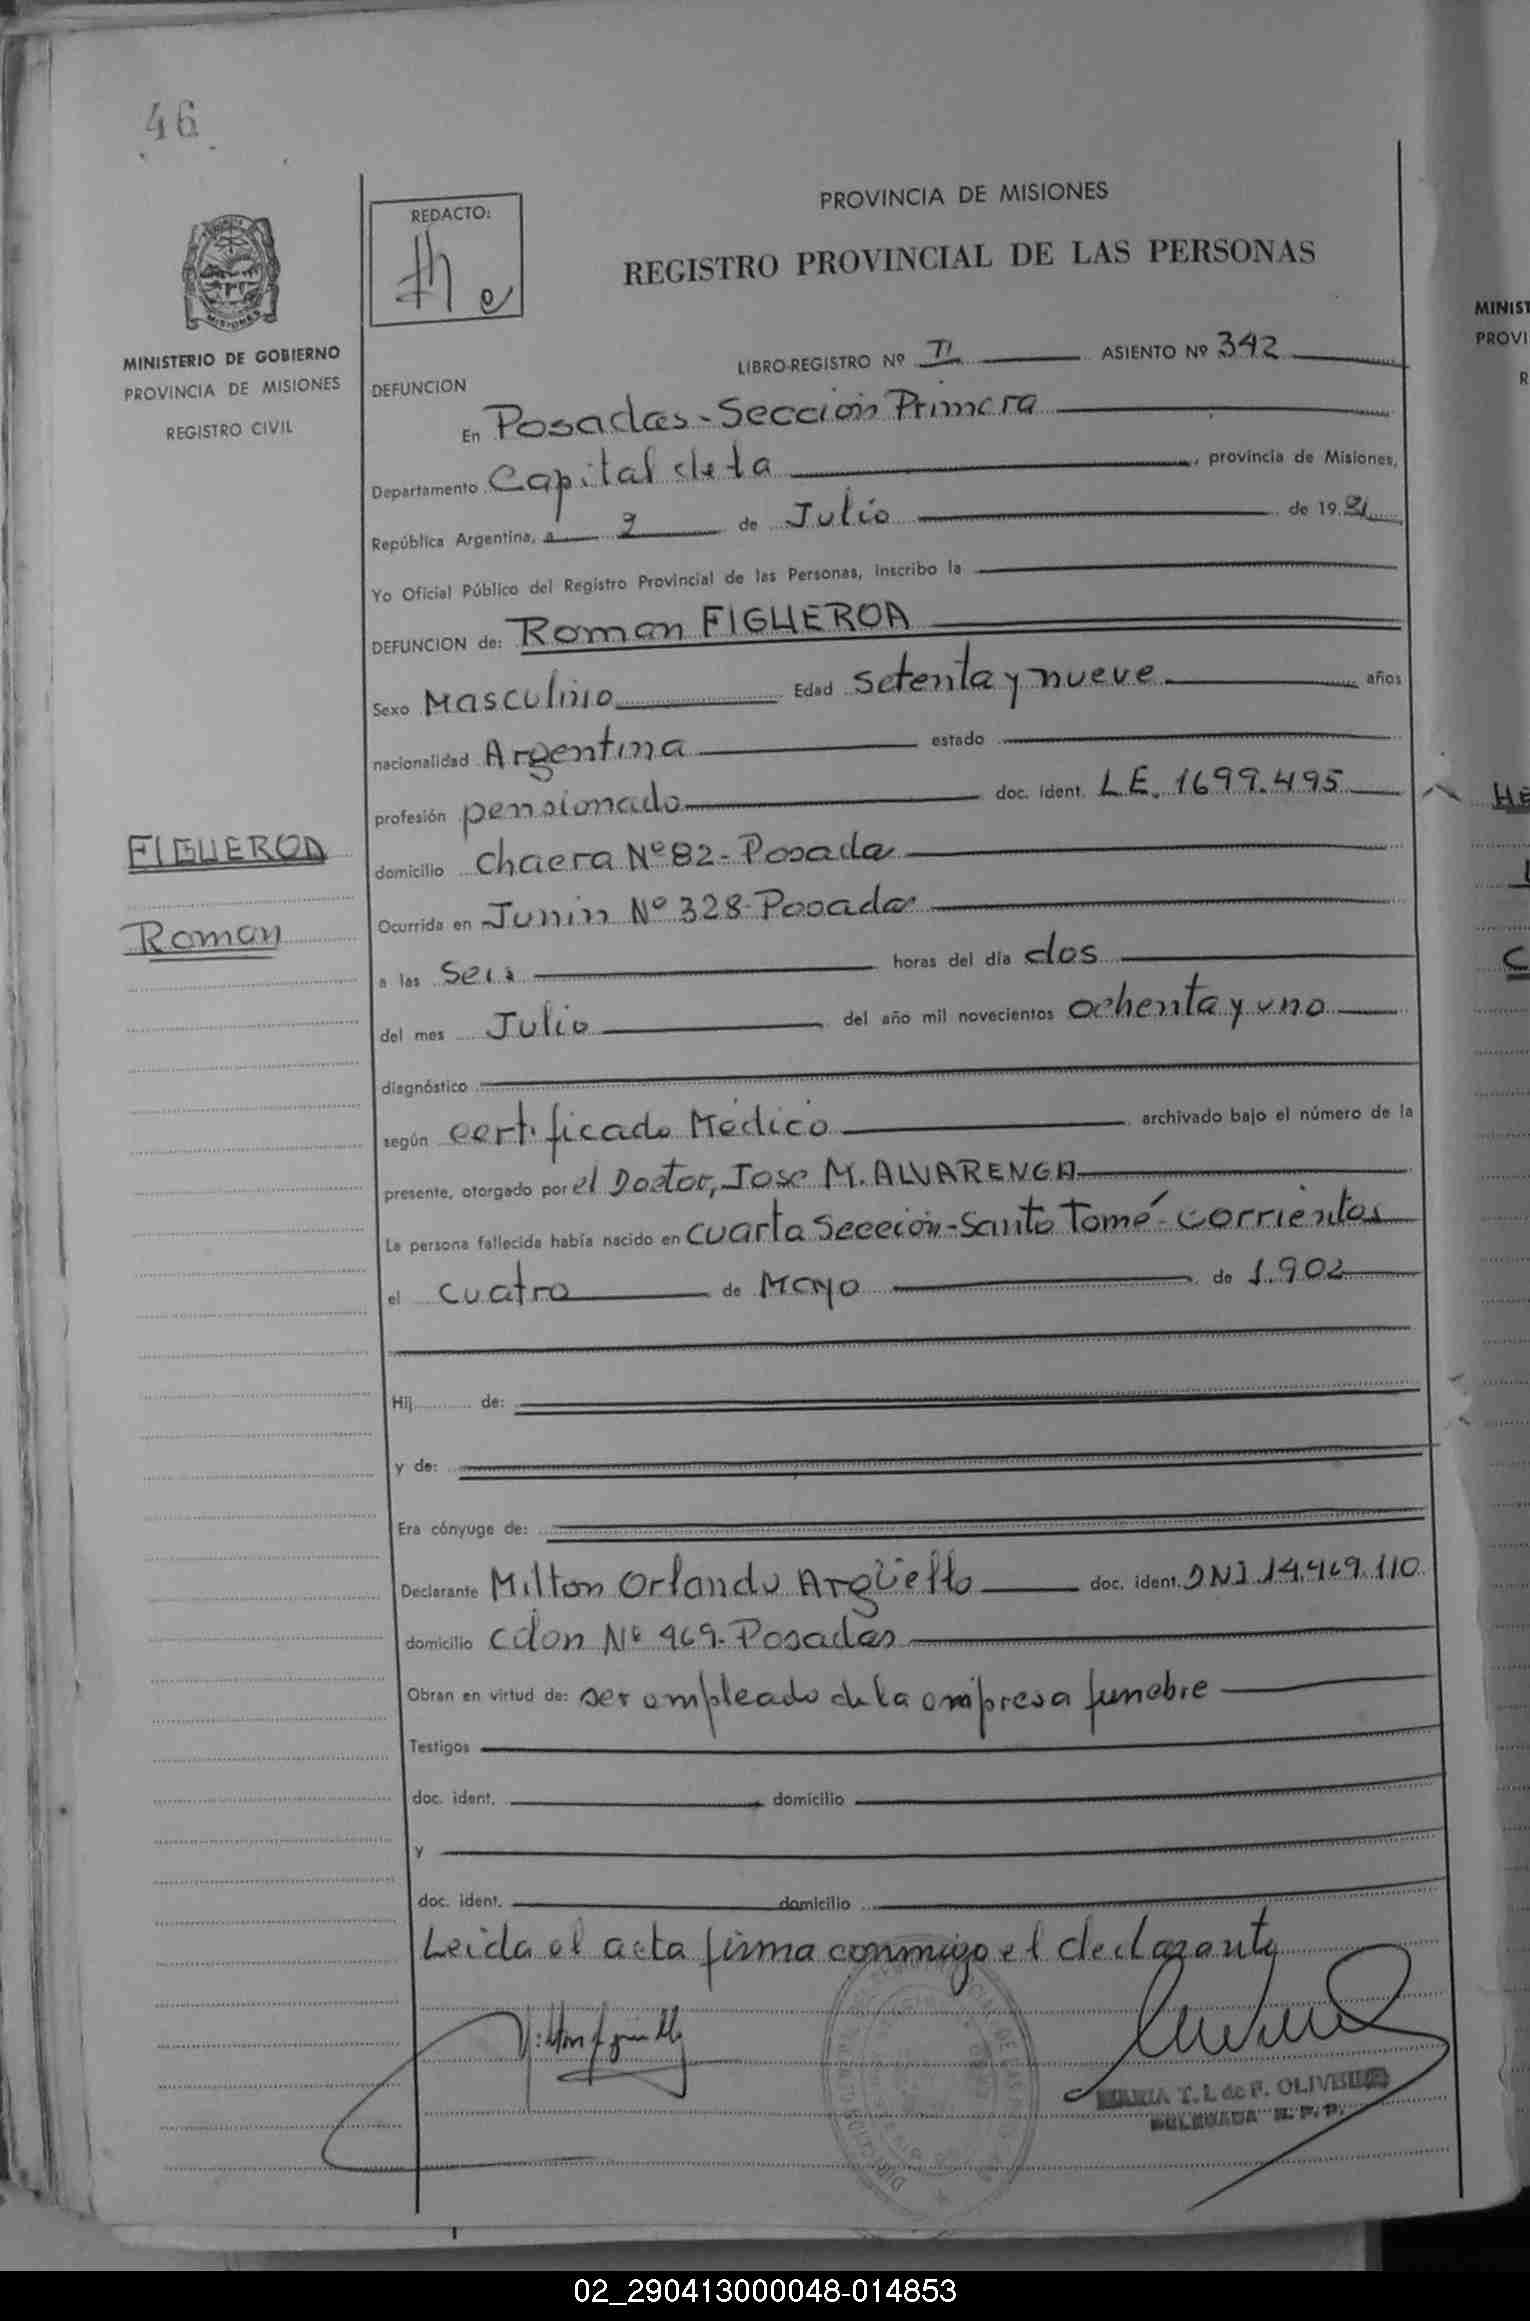 46
REDACTO:
PROVINCIA DE MISIONES
REGISTRO PROVINCIAL DE LAS PERSONAS
MISIONES
MINISTERIO DE GOBIERNO
PROVINCIA DE MISIONES
REGISTRO CIVIL
LIBRO-REGISTRO Nº II ASIENTO Nº 342
DEFUNCION
En Posadas - Sección Primera
Departamento Capital de la, provincia de Misiones,
República Argentina, a 2 de Julio de 19 81
Yo Oficial Público del Registro Provincial de las Personas, inscribo la
DEFUNCION de: Roman FIGUEROA
Sexo Masculino Edad setenta y nueve años
nacionalidad Argentina estado
profesión pensionado doc. ident. LE. 1699.495
FIGUEROA
domicilio Chacra Nº 82 - Posadas
Roman
Ocurrida en Junín Nº 328 - Posadas
a las Seis horas del día dos
del mes Julio del año mil novecientos ochenta y uno
diagnóstico
según certificado Médico archivado bajo el número de la
presente, otorgado por el Doctor, Jose M. ALVARENGA
La persona fallecida había nacido en cuarta Sección - Santo Tomé - Corrientes
el cuatro de Mayo de 1.902
Hij de:
y de:
Era cónyuge de:
Declarante Milton Orlando Argüello doc. ident. DNI. 14.469.110
domicilio Colon Nº 969 - Posadas
Obran en virtud de: ser empleado de la empresa funebre
Testigos
doc. ident. domicilio
y
doc. ident. domicilio
Leida el acta firma conmigo el declarante
MARIA T. L. de F. OLIVEIRA
DELEGADA R. P. P.
MINIST
PROVI
R
02_290413000048-014853